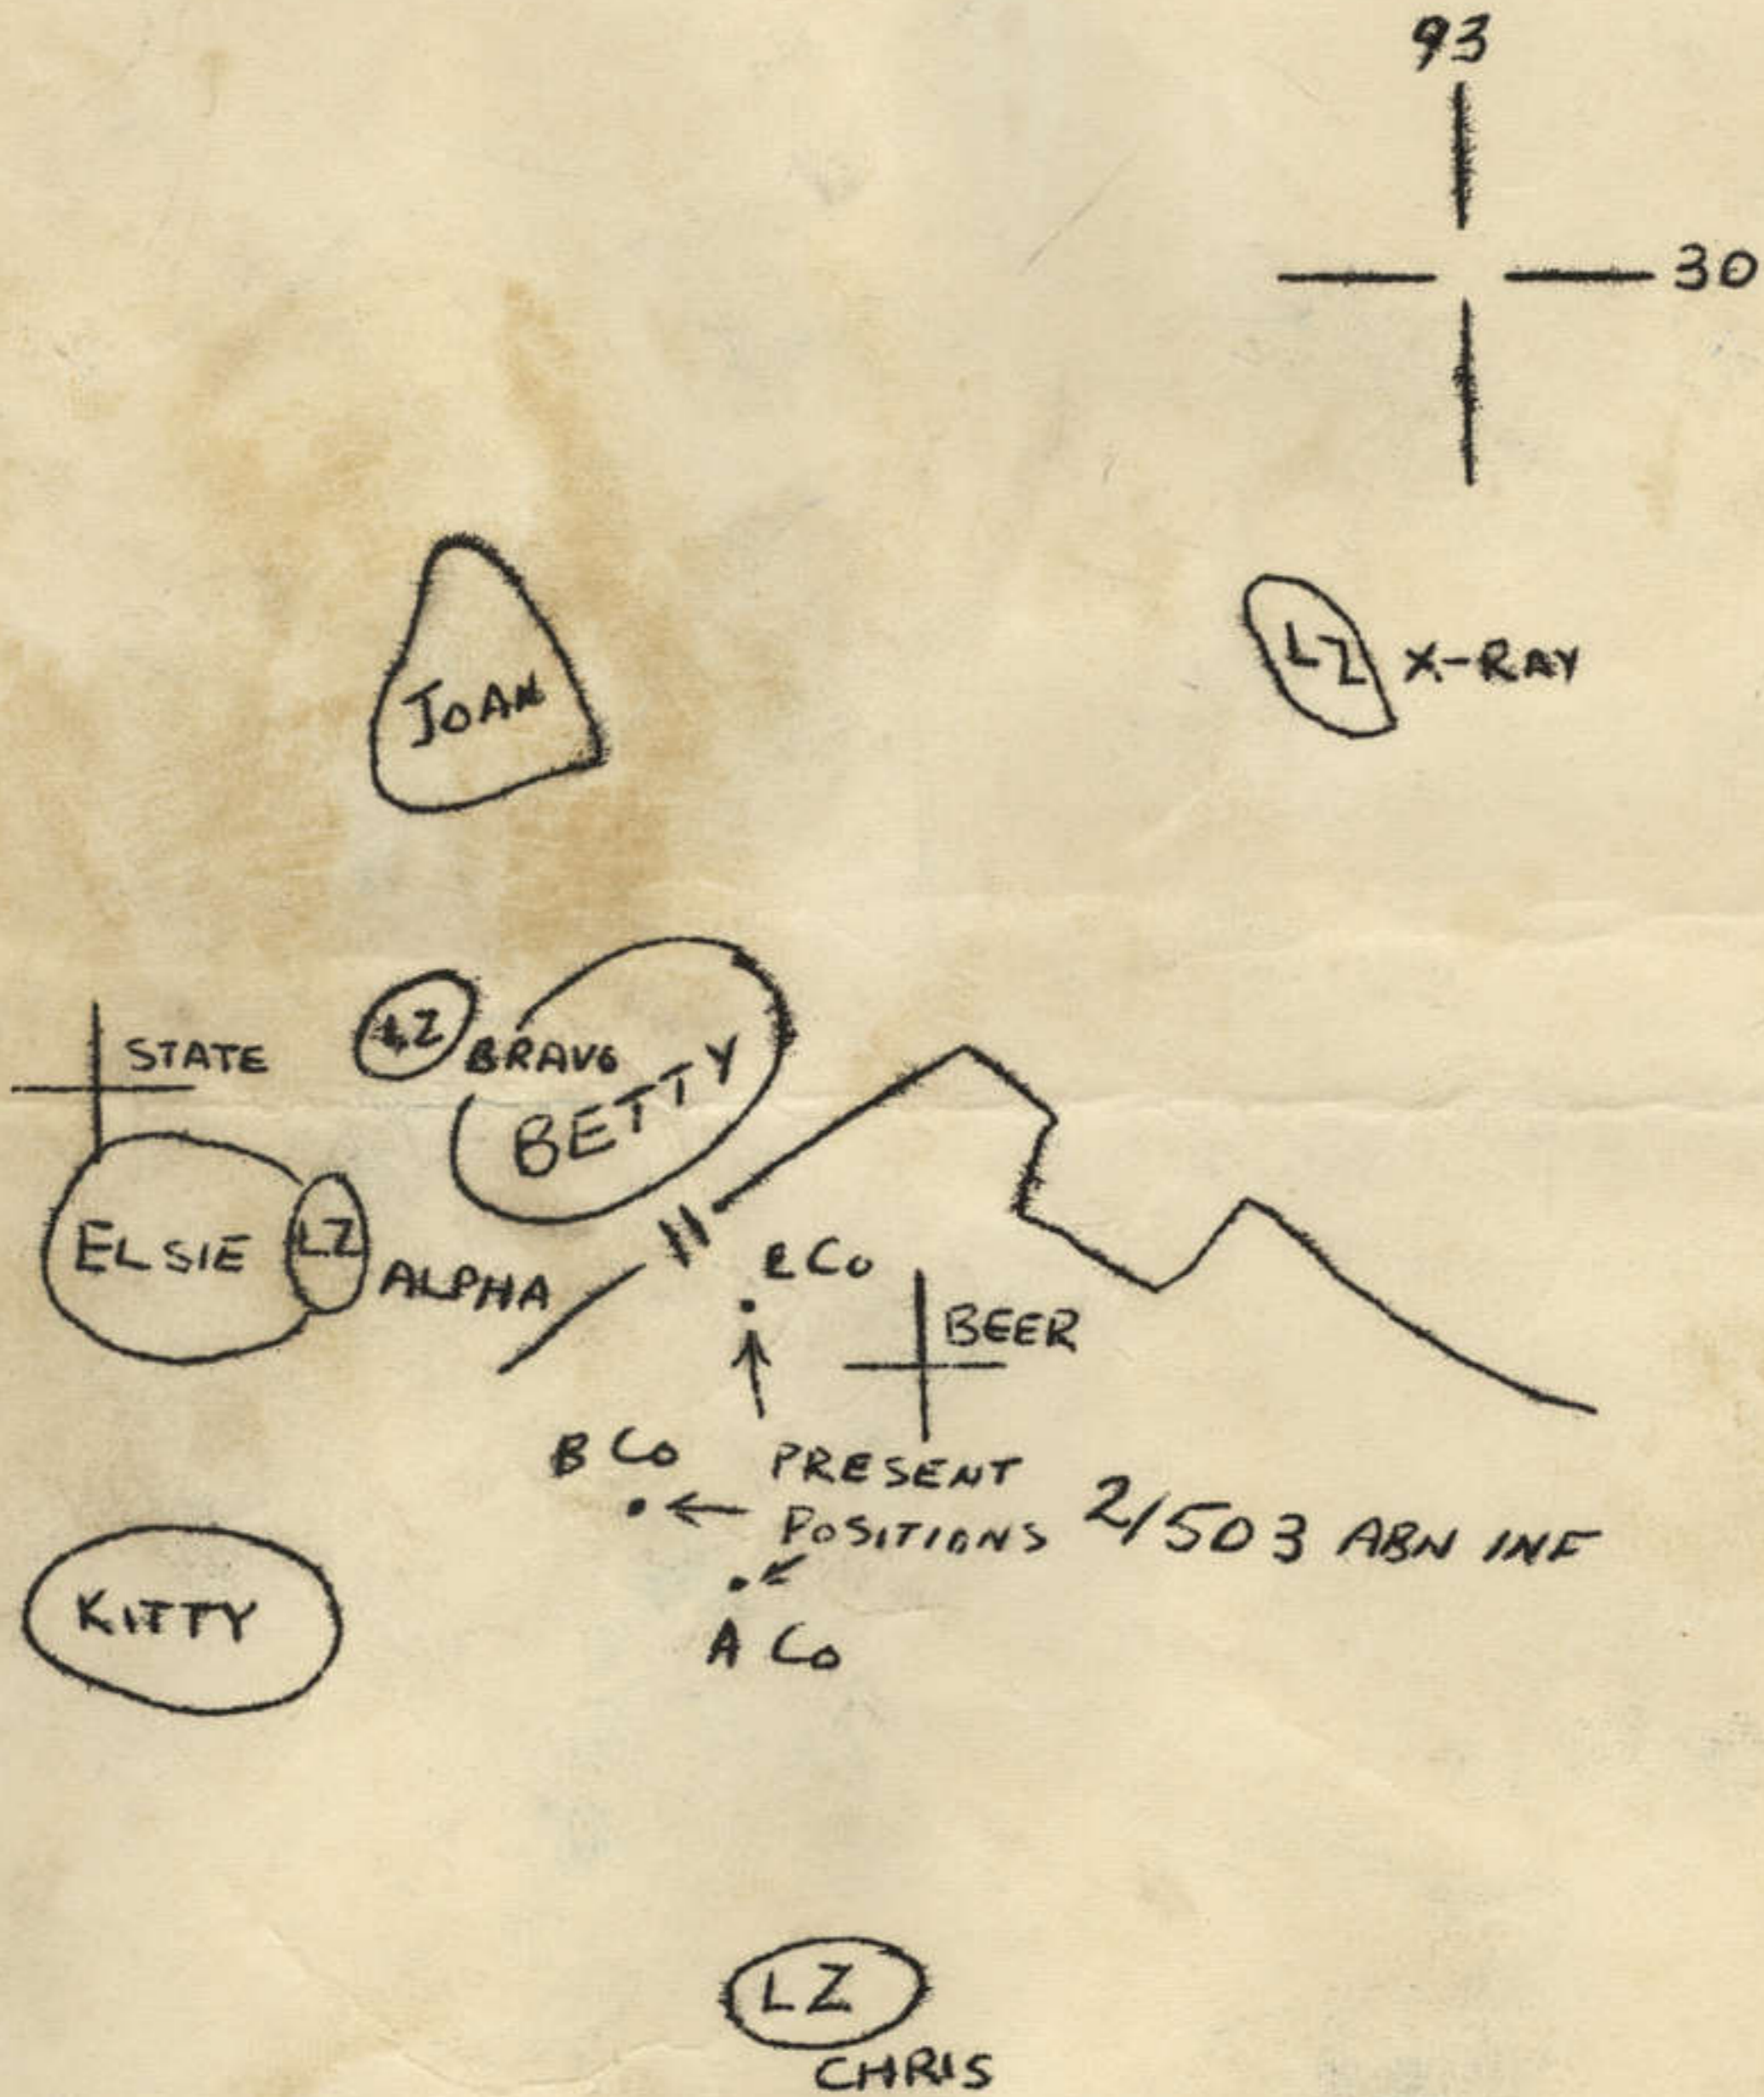 93
30
JOAN
LZ X-RAY
STATE
LZ BRAVO
BETTY
ELSIE
LZ ALPHA
Co
BEER
B Co
PRESENT
POSITIONS
2/503 ABN INF
A Co
KITTY
LZ
CHRIS